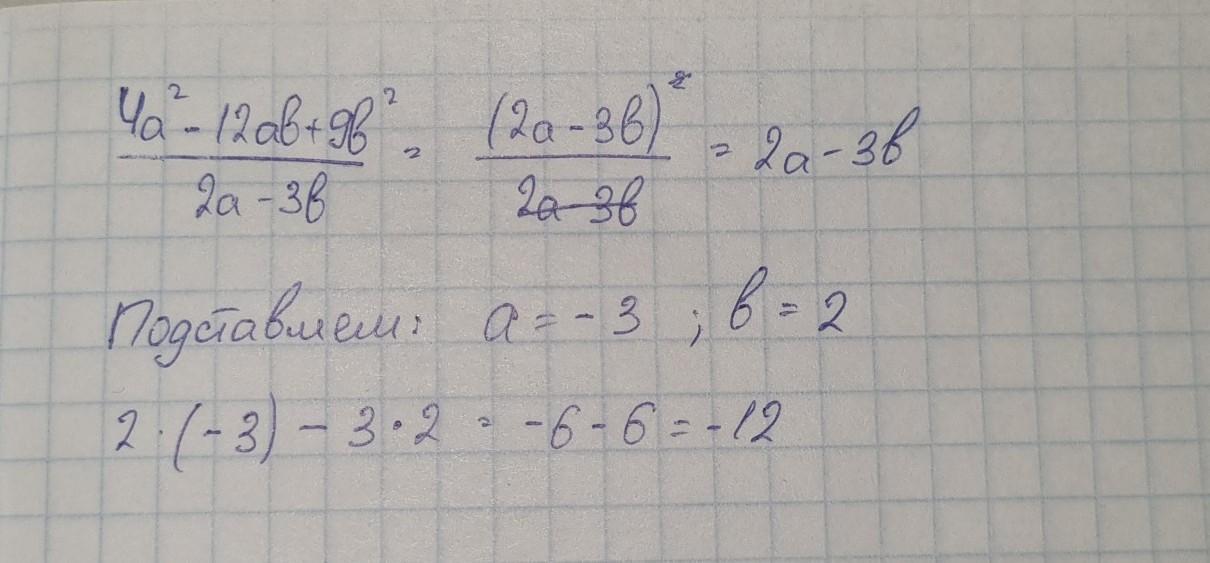 4а² - 12ав + 9в² / 2а - 3в = (2а - 3в)² / 2а - 3в = 2а - 3в
Подставляем: а = - 3 ; в = 2
2 · (-3) - 3 · 2 = -6 - 6 = -12